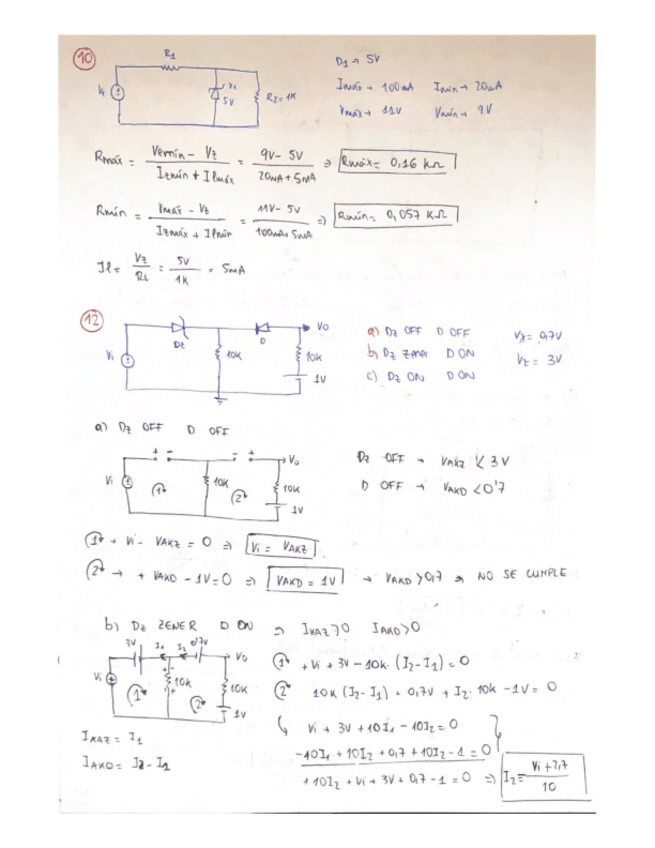 10
R1
Vi
Vz
5V
R2 = 1K
D1 → 5V
Imáx → 100mA Imin → 20mA
Vmáx → 11V Vmín → 9V
Rmáx = Vemín - Vz / Izmín + Ilmáx = 9V - 5V / 20mA + 5mA ⇒ Rmáx = 0,16 KΩ
Rmín = Vmáx - Vz / Izmáx + Ilmín = 11V - 5V / 100mA + 5mA ⇒ Rmín = 0,057 KΩ
Il = Vz / RL = 5V / 1K = 5mA
12
Vi
Dz
10K
D
Vo
10K
1V
a) Dz OFF D OFF
b) Dz zener D ON
c) Dz ON D ON
Vγ = 0,7V
Vz = 3V
a) Dz OFF D OFF
+ - - + Vo
Vi
1
10K
2
10K
1V
Dz OFF → VAKZ < 3V
D OFF → VAKD < 0'7
1 + Vi - VAKZ = 0 ⇒ Vi = VAKZ
2 → + VAKD - 1V = 0 ⇒ VAKD = 1V → VAKD > 0,7 ⇒ NO SE CUMPLE
b) Dz ZENER D ON ⇒ IKAZ > 0 IAKD > 0
3V I1 I2 0'7V Vo
Vi
1
10K
2
10K
1V
1 + Vi + 3V - 10K · (I2 - I1) = 0
2 10K (I2 - I1) + 0,7V + I2 · 10K - 1V = 0
Vi + 3V + 10I1 - 10I2 = 0
-10I1 + 10I2 + 0,7 + 10I2 - 1 = 0
+ 10I2 + Vi + 3V + 0,7 - 1 = 0 ⇒ I2 = Vi + 2,7 / 10
IKAZ = I1